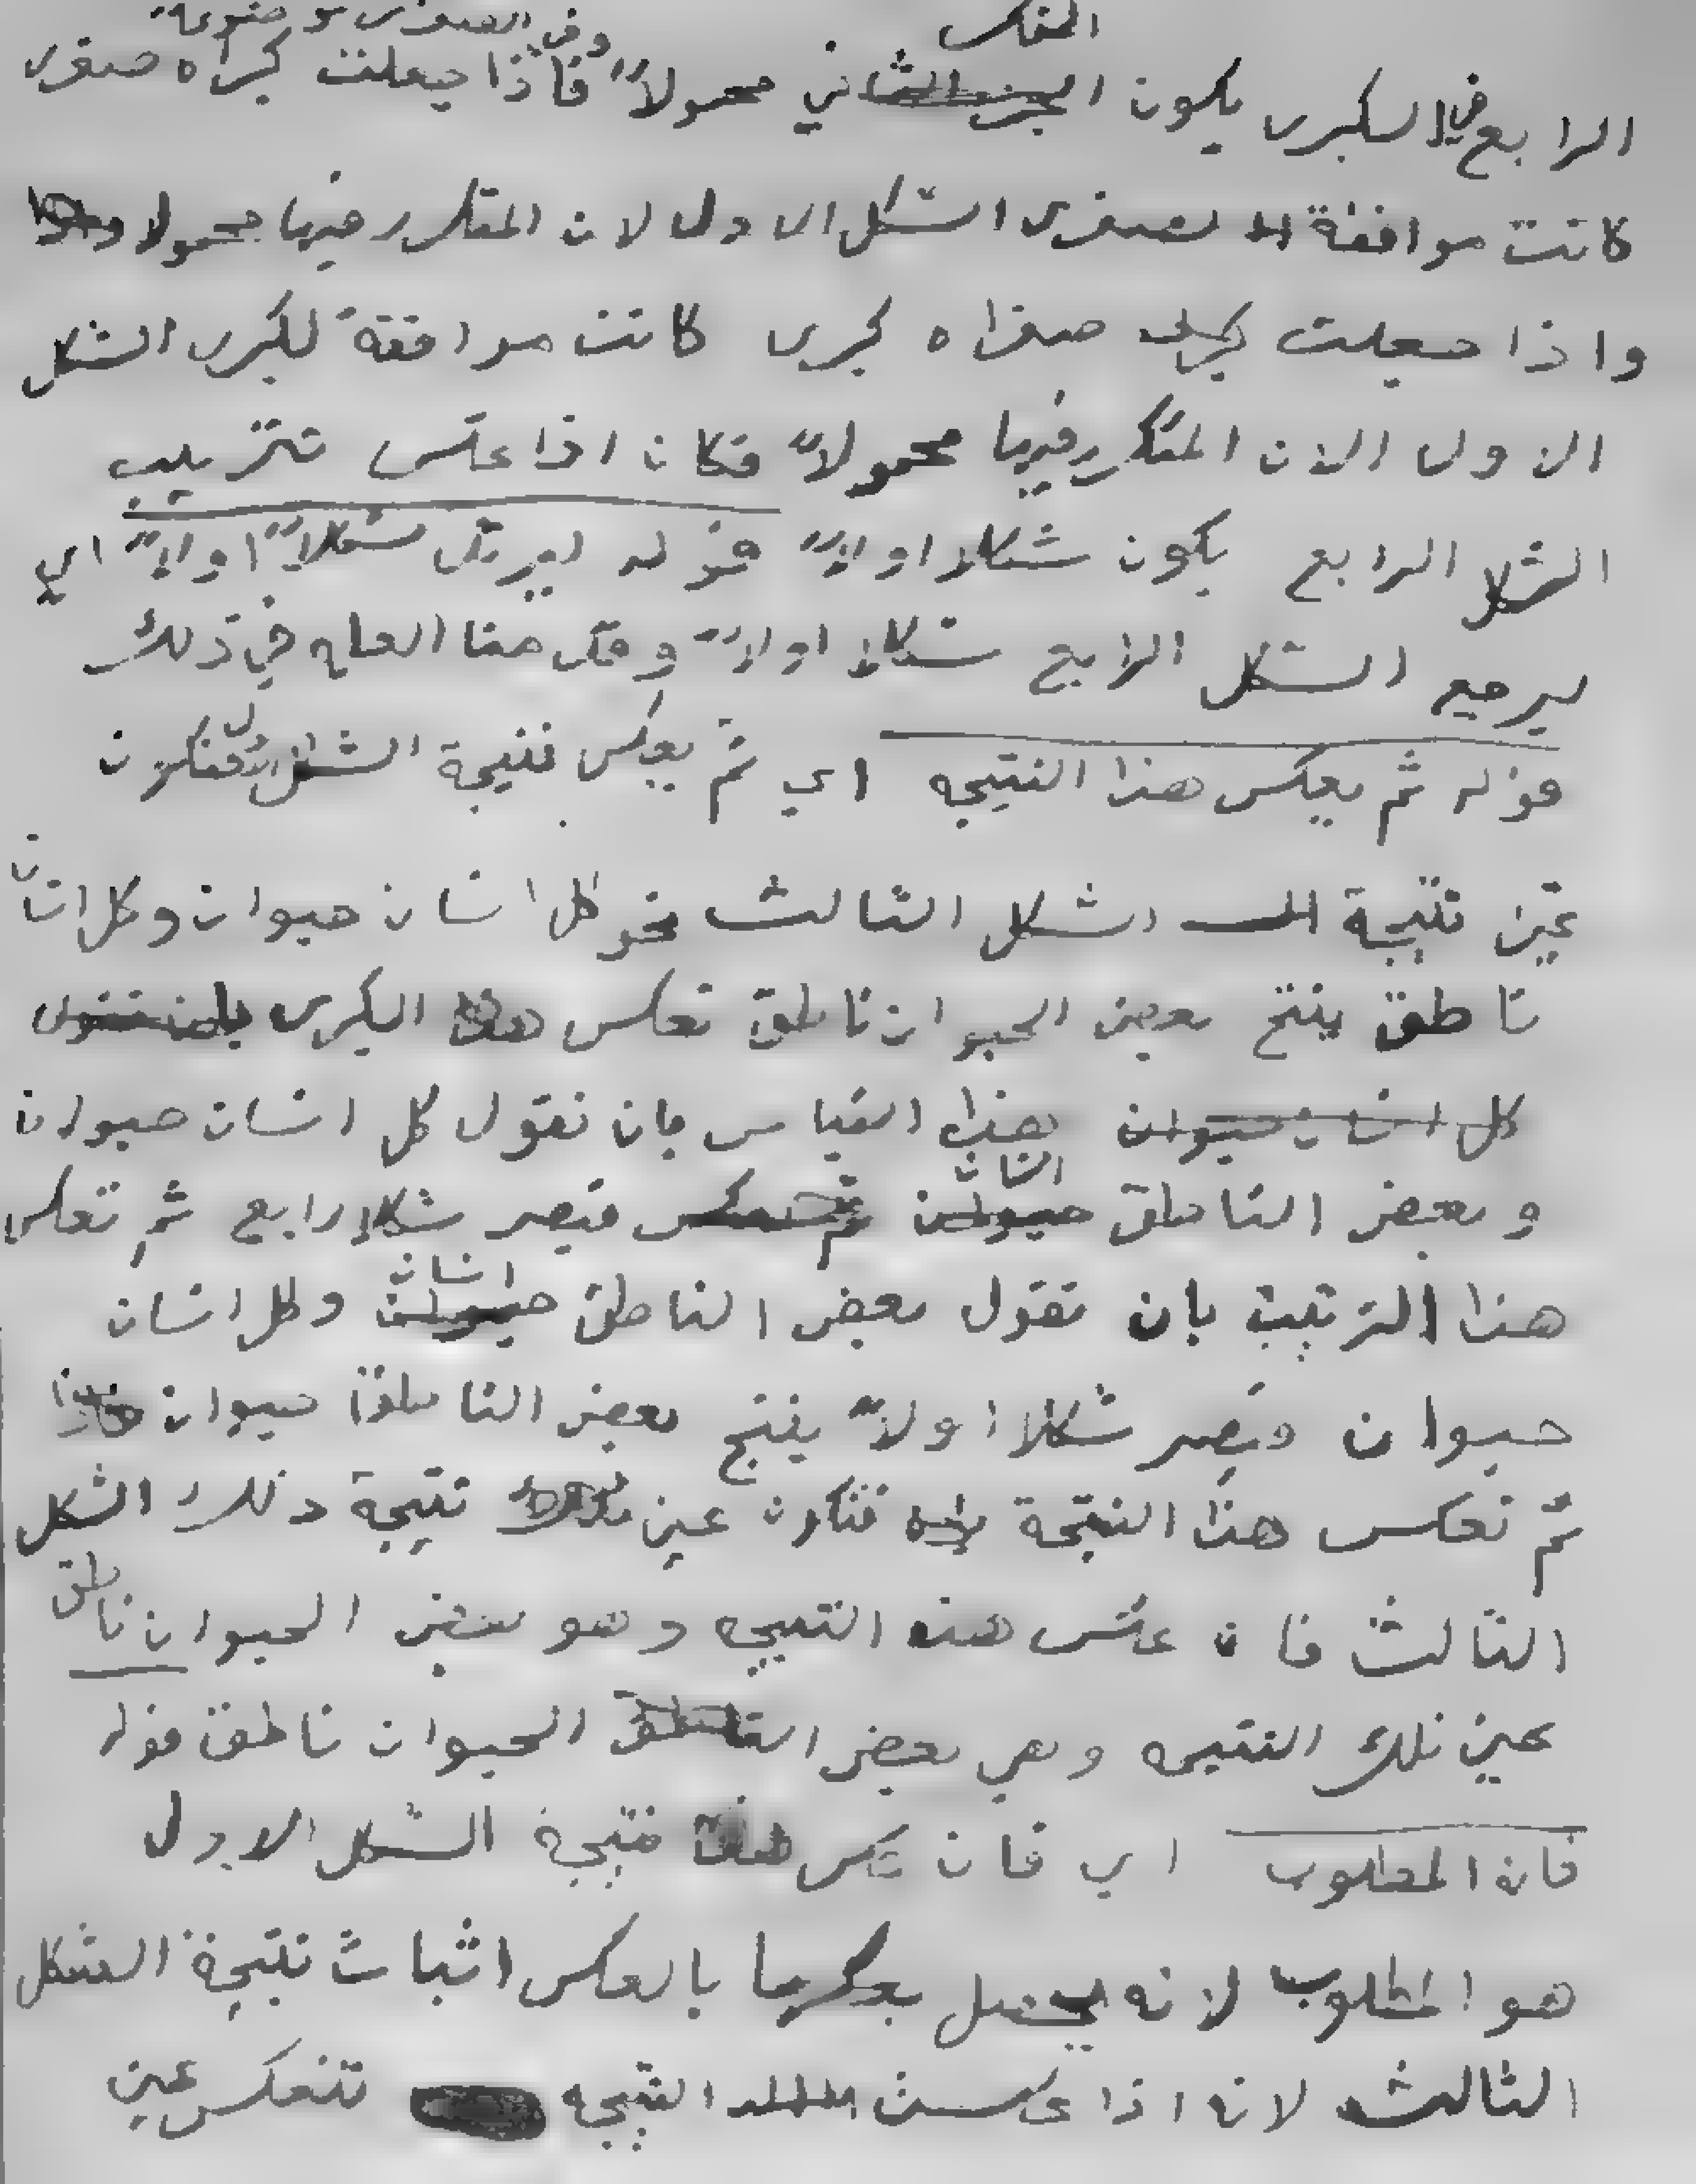 وفي الصغرى موضوعا
المتكرر
الرابع في الكبرى يكون الجزء الثاني محمولاً فاذا جعلت كبراه صغرى
كانت موافقة لصغرى الشكل الاول لان المتكرر فيها محمولا
واذا جعلت صغراه كبرى كانت موافقة لكبرى الشكل
الاول الان المتكرر فيها محمولاً فكان اذا عكس تتريب
الشكل الرابع يكون شكلا اولاً قوله ليرتد شكلاً اولاً اي
ليرجع الشكل الرابع شكلا اولاً في ذلك
قوله ثم يعكس هذا النتيجه اي ثم يعكس نتيجة الشكل الاول فتكون
عين نتيجة الشكل الثالث نحو كل انسان حيوان وكل انسان
ناطق ينتج بعض الحيوان ناطق تعكس هذا الكبرى بان تقول
كل انسان حيوان هذا القياس بان تقول كل انسان حيوان
انسان
وبعض الناطق حيوان ثم تعكس فيصير شكلا رابع ثم تعكس
انسان
هذا الترتيب بان تقول بعض الناطق حيوان وكل انسان
حيوان فيصير شكلا اولاً ينتج بعض الناطق حيوان
ثم تعكس هذا النتيجة فتكون عين نتيجة ذلك الشكل
الثالث فان عكس هذه النتيجه وهو بعض الحيوان ناطق
عين تلك النتيجه وهي بعض الناطق الحيوان ناطق قوله
فان المطلوب اي فان عكس هذه نتيجة الشكل الاول
هو المطلوب لانه يحصل بعكسها بالعكس اثبات نتيجة الشكل
الثالث لانه اذا عكست النتيجه تنعكس عين